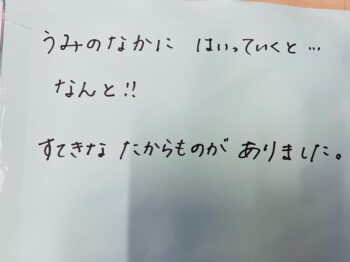 うみのなかに はいっていくと…
なんと!!
すてきな たからものが ありました。